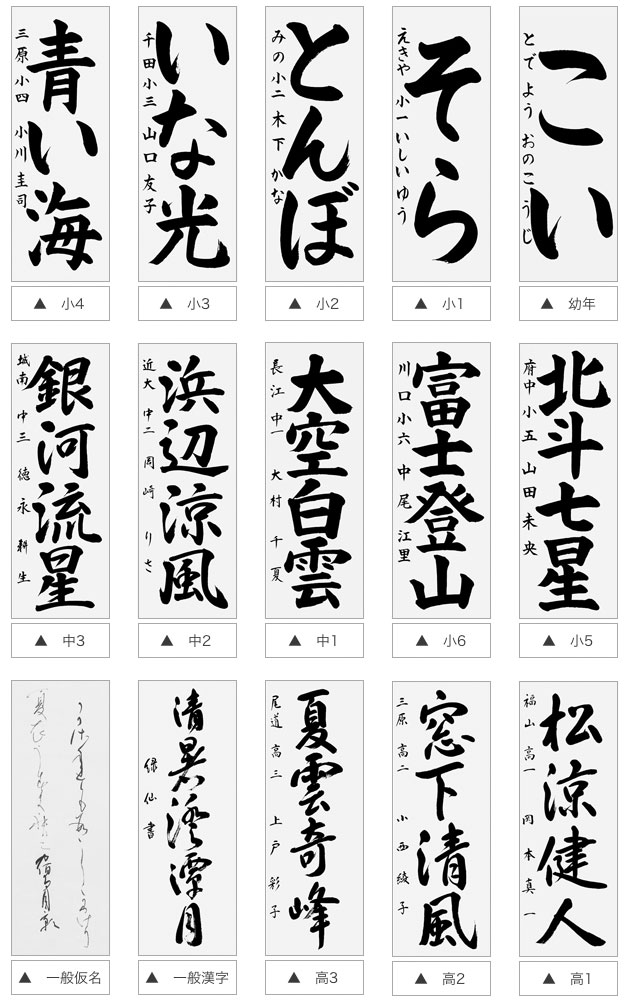 こい
とでよう おのこうじ
▲ 幼年
そら
えきや 小一 いしいゆう
▲ 小1
とんぼ
みの小二 木下 かな
▲ 小2
いな光
千田小三 山口友子
▲ 小3
青い海
三原小四 小川圭司
▲ 小4
北斗七星
府中小五 山田未央
▲ 小5
富士登山
川口小六 中尾江里
▲ 小6
大空白雲
長江中一 大村千夏
▲ 中1
浜辺涼風
近大中二 岡崎りさ
▲ 中2
銀河流星
城南中三 徳永耕生
▲ 中3
松涼健人
福山高一 岡本真一
▲ 高1
窓下清風
三原高二 小西綾子
▲ 高2
夏雲奇峰
尾道高三 上戸彩子
▲ 高3
清暑澄潭月
緑仙書
▲ 一般漢字
▲ 一般仮名